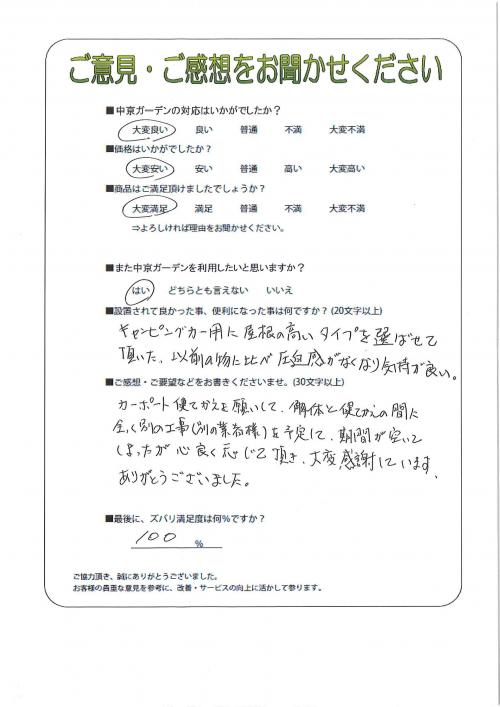 ご意見・ご感想をお聞かせください
■中京ガーデンの対応はいかがでしたか？
大変良い 良い 普通 不満 大変不満
■価格はいかがでしたか？
大変安い 安い 普通 高い 大変高い
■商品はご満足頂けましたでしょうか？
大変満足 満足 普通 不満 大変不満
⇒よろしければ理由をお聞かせください。
■また中京ガーデンを利用したいと思いますか？
はい どちらとも言えない いいえ
■設置されて良かった事、便利になった事は何ですか？(20文字以上)
キャンピングカー用に屋根の高いタイプを選ばせて
頂いた、以前の物に比べ圧迫感がなくなり気持が良い。
■ご感想・ご要望などをお書きくださいませ。(30文字以上)
カーポート建てかえを願いして、解体と建てかえの間に
全く別の工事(別の業者様)を予定して、期間が空いて
しまったが心良く応じて頂き、大変感謝しています、
ありがとうございました。
■最後に、ズバリ満足度は何%ですか？
100 %
ご協力頂き、誠にありがとうございました。
お客様の貴重な意見を参考に、改善・サービスの向上に活かして参ります。